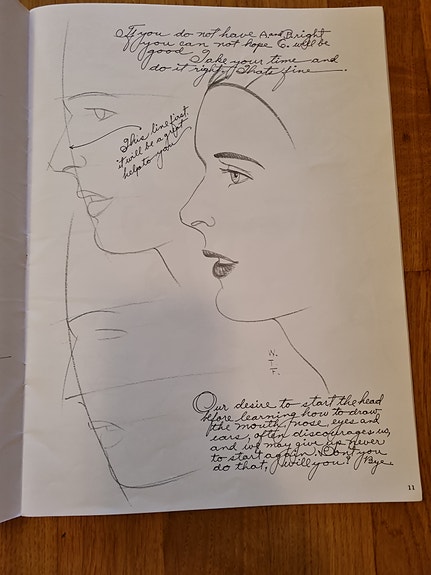 If you do not have A and B right
you can not hope C. will be
good Take your time and
do it right. Thats fine
This line first.
it will be a great
help to you
W.
T.
F.
Our desire to start the head
before learning how to draw
the mouth, nose, eyes and
ears, often discourages us,
and we may give up never
to start again. Dont you
do that, will you? Bye.
11